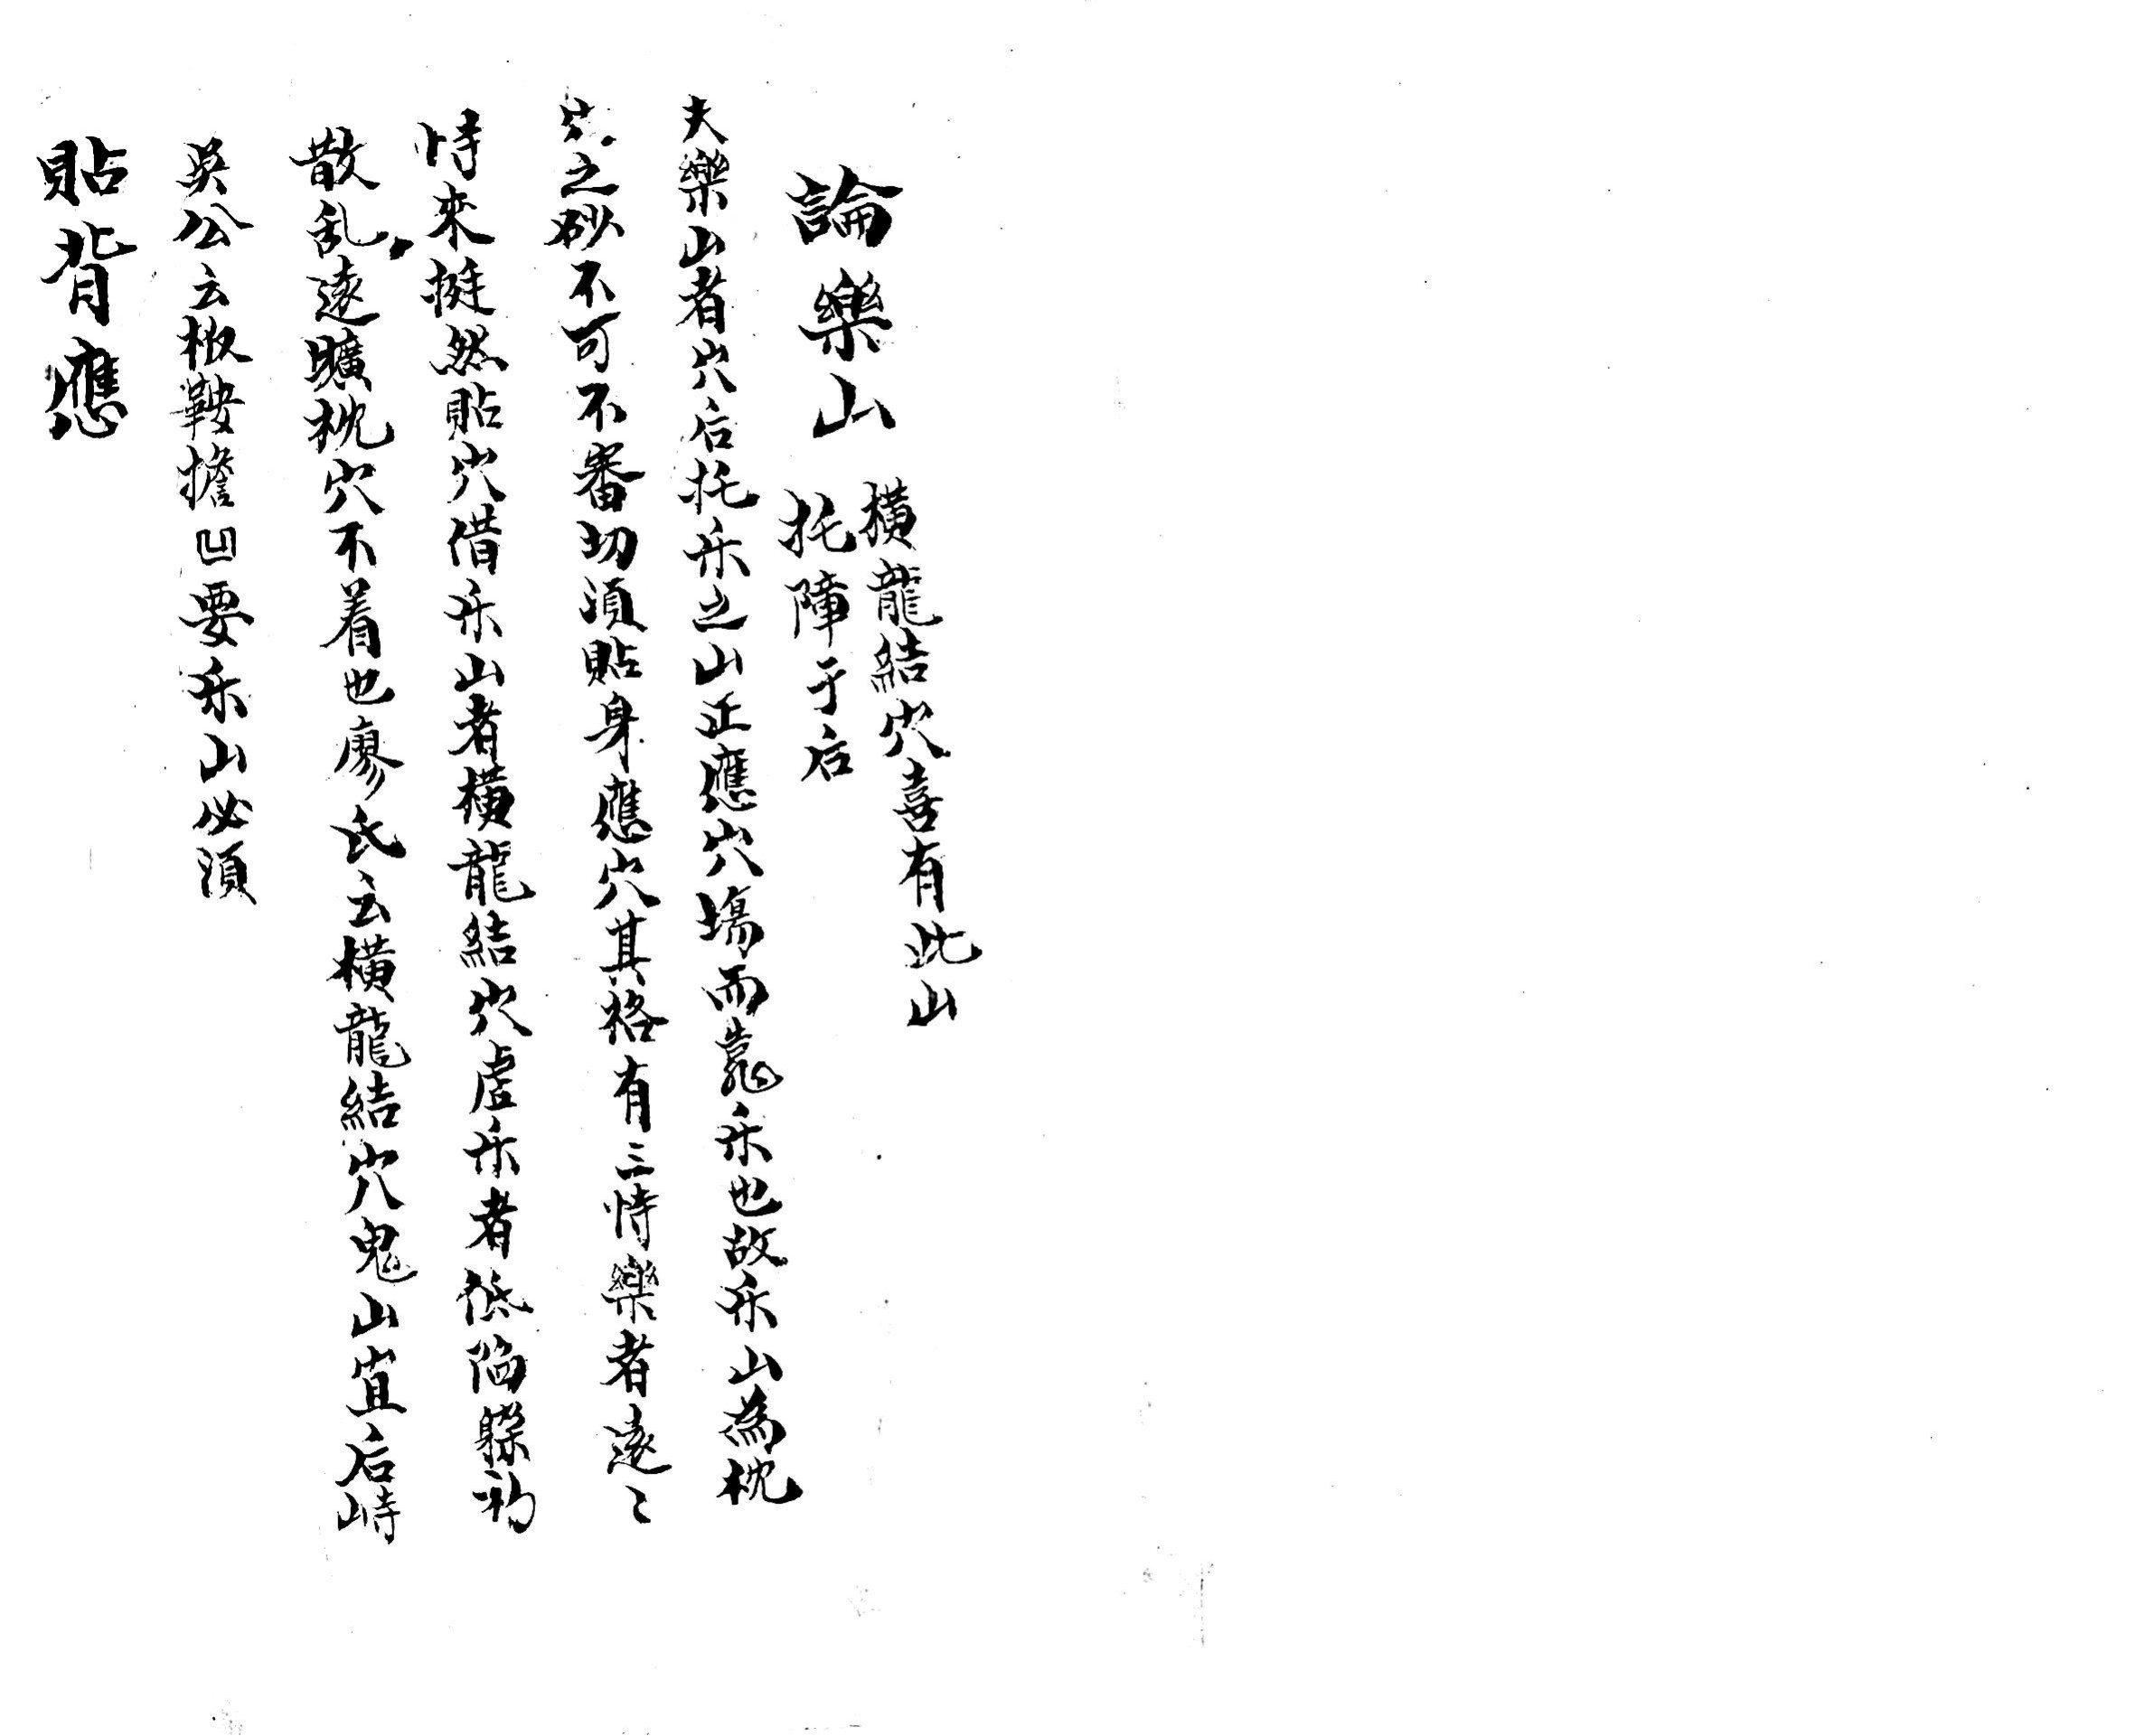 論樂山
橫龍結穴喜有此山
托障于后
夫樂山者穴后托乐之山正應穴塲而靠乐也故乐山為枕
穴之砂不可不審切須貼身應穴其格有三恃樂者遠〻
恃來挺然貼穴借乐山者橫龍結穴虛乐者低陷
散乱遠曠枕穴不着也廖氏云橫龍結穴鬼山宜后峙
吳公云板鞍擔凹要乐山必須
貼背應